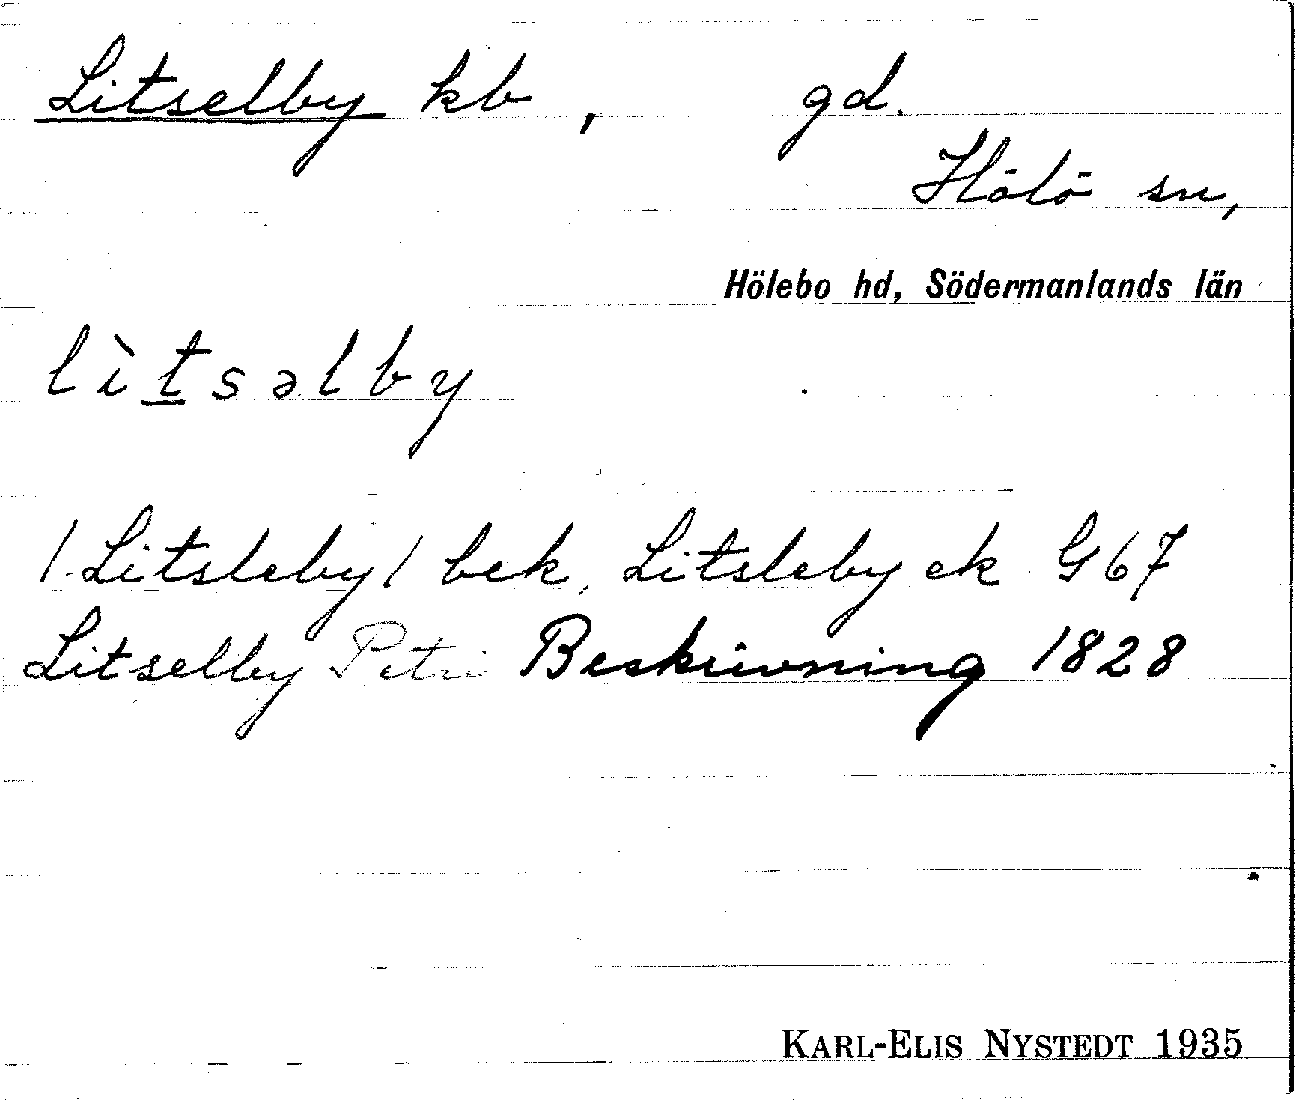 Litselby kb, gd.
Hölö sn,
Hölebo hd, Södermanlands län
lìtsəlby
/Litsleby/ bek, Litsleby ek G67
Litselby Petri Beskrivning 1828
KARL-ELIS NYSTEDT 1935